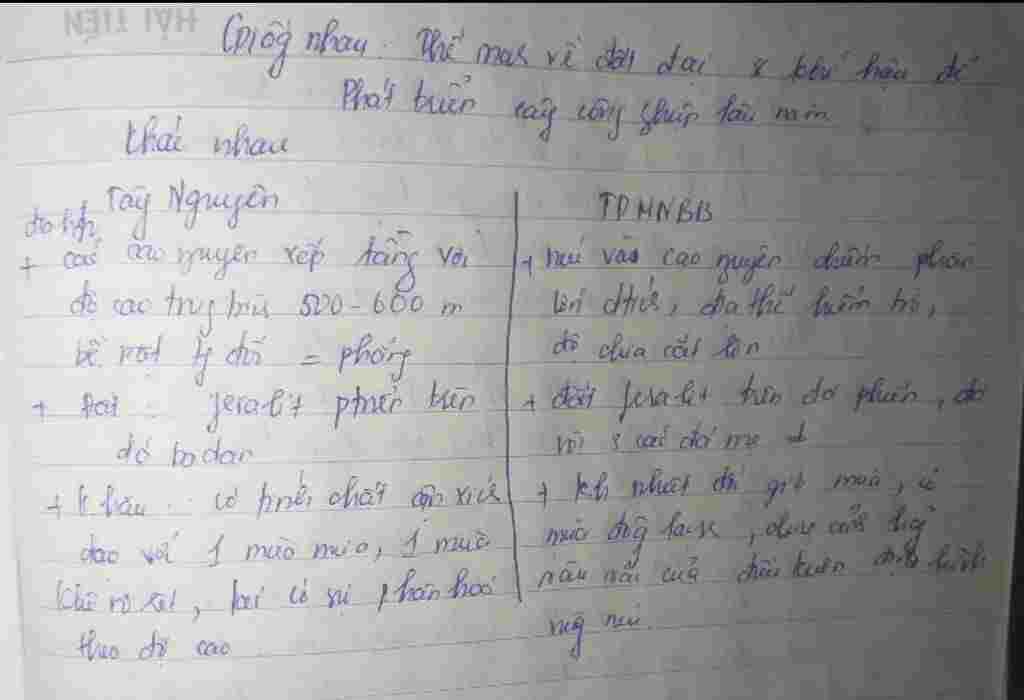 HẢI TIẾN
Giốg nhau: Thế mạh về đất đai & khí hậu để
Phát triển cây công ghiệp lâu năm
khác nhau
Tây Nguyên
địa hìh
+ các cao nguyên xếp tầng với
độ cao trug bìh 500-600 m
bề mặt tg đối = phẳng
+ Đất : feralit ptriển trên
đá badan
+ K hậu : có tính chất cận xích
đạo với 1 mùa mưa, 1 mùa
khô rõ rệt, lại có sự phân hoá
theo độ cao
TDMNBB
+ núi và cao nguyên chiếm phần
lớn dtích, địa thế hiểm trở,
độ chia cắt lớn
+ đất feralit trên đá phiến, đá
vôi & các đá mẹ
+ kh nhiệt đới gió mùa, có
mùa đôg lạnh, chịu ảnh hưởg
sâu sắc của điều kiện địa hình
vùg núi.